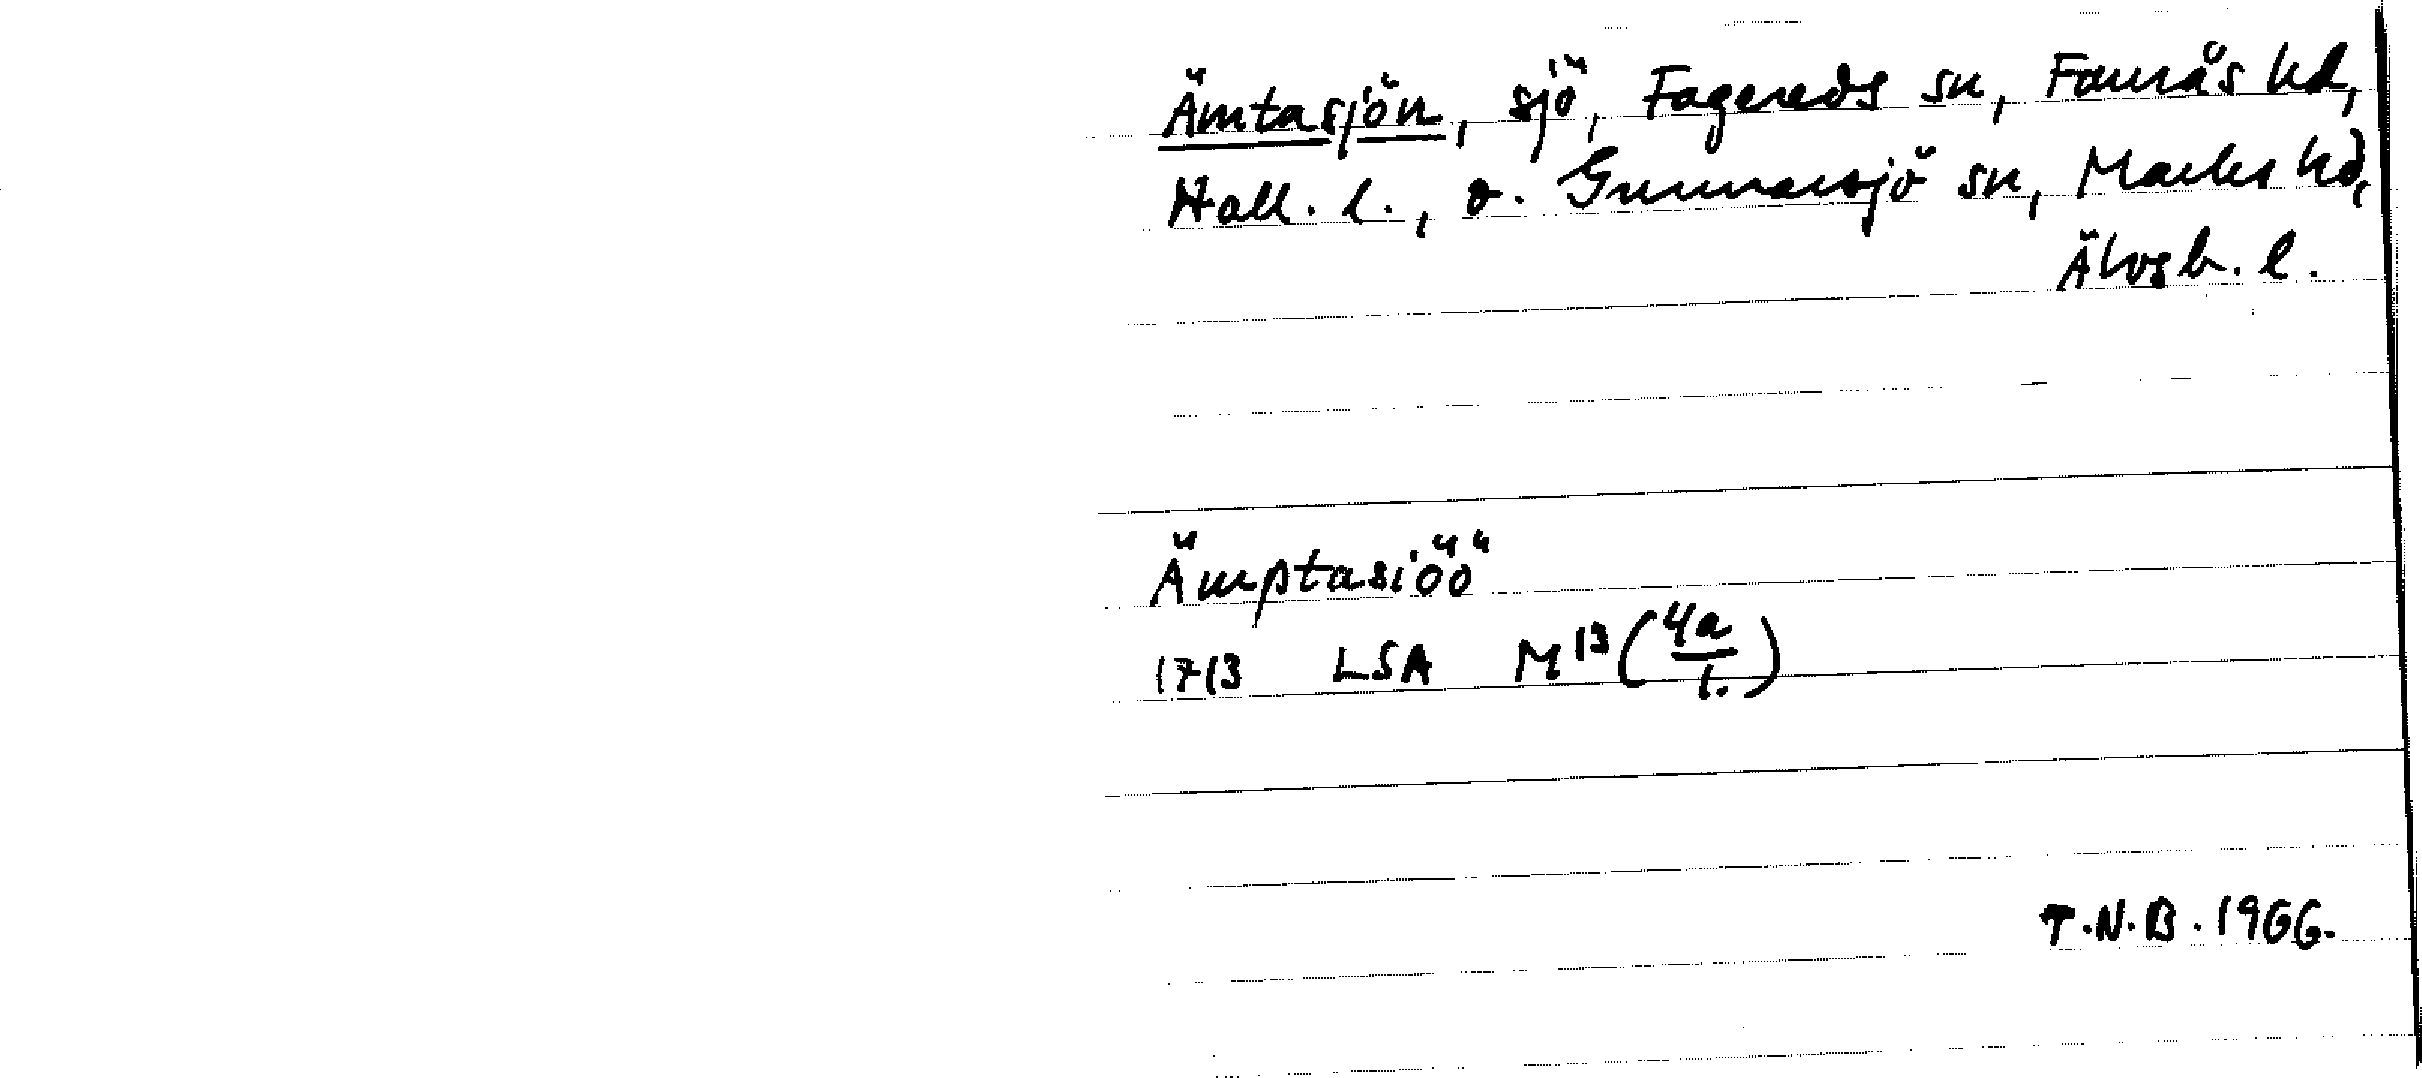 Ämtasjön, sjö, Fagereds sn, Faurås hd,
Hall. l., o. Gunnarsjö sn, Marks hd,
Älvsb. l.
Ämptasiöö
1713 LSA M13 (4a/1.)
T.N.B. 1966.